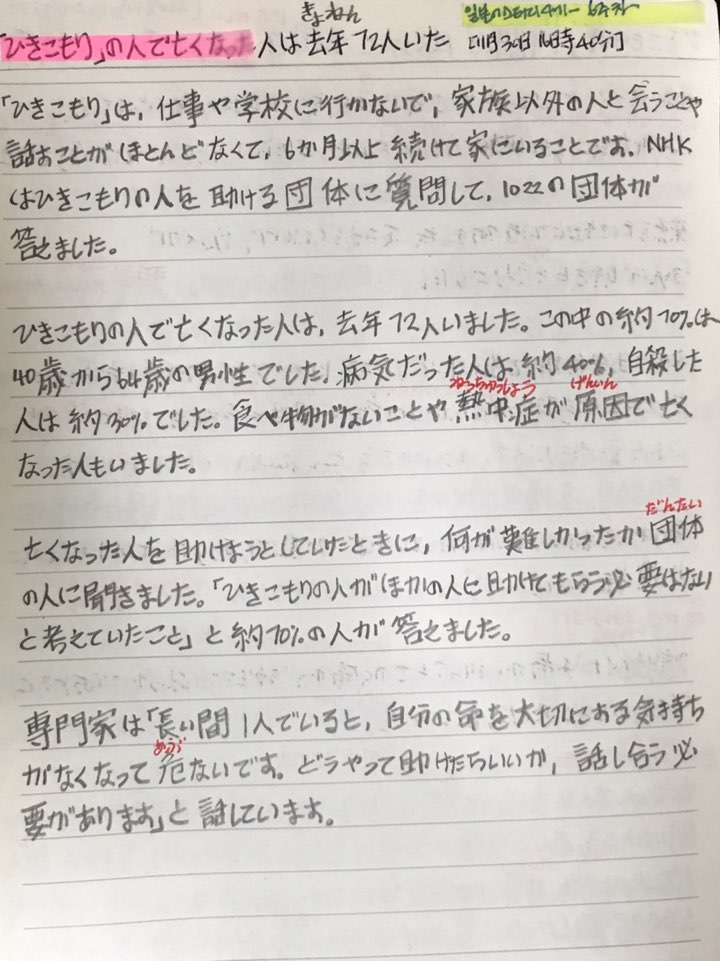 きょねん
「ひきこもり」の人で亡くなった人は去年72人いた [11月30日 16時40分]
「ひきこもり」は、仕事や学校に行かないで、家族以外の人と会うことや
話すことがほとんどなくて、6か月以上続けて家にいることです。NHK
はひきこもりの人を助ける団体に質問して、1022の団体が
答えました。
ひきこもりの人で亡くなった人は、去年72人いました。この中の約70%は
40歳から64歳の男性でした。病気だった人は約40%、自殺した
ねっちゅうしょう げんいん
人は約30%でした。食べ物がないことや熱中症が原因で亡く
なった人もいました。
だんたい
亡くなった人を助けようとしていたときに、何が難しかったか団体
の人に聞きました。「ひきこもりの人がほかの人に助けてもらう必要はない
と考えていたこと」と約70%の人が答えました。
専門家は「長い間1人でいると、自分の命を大切にする気持ち
あぶ
がなくなって危ないです。どうやって助けたらいいか、話し合う必
要があります」と話しています。